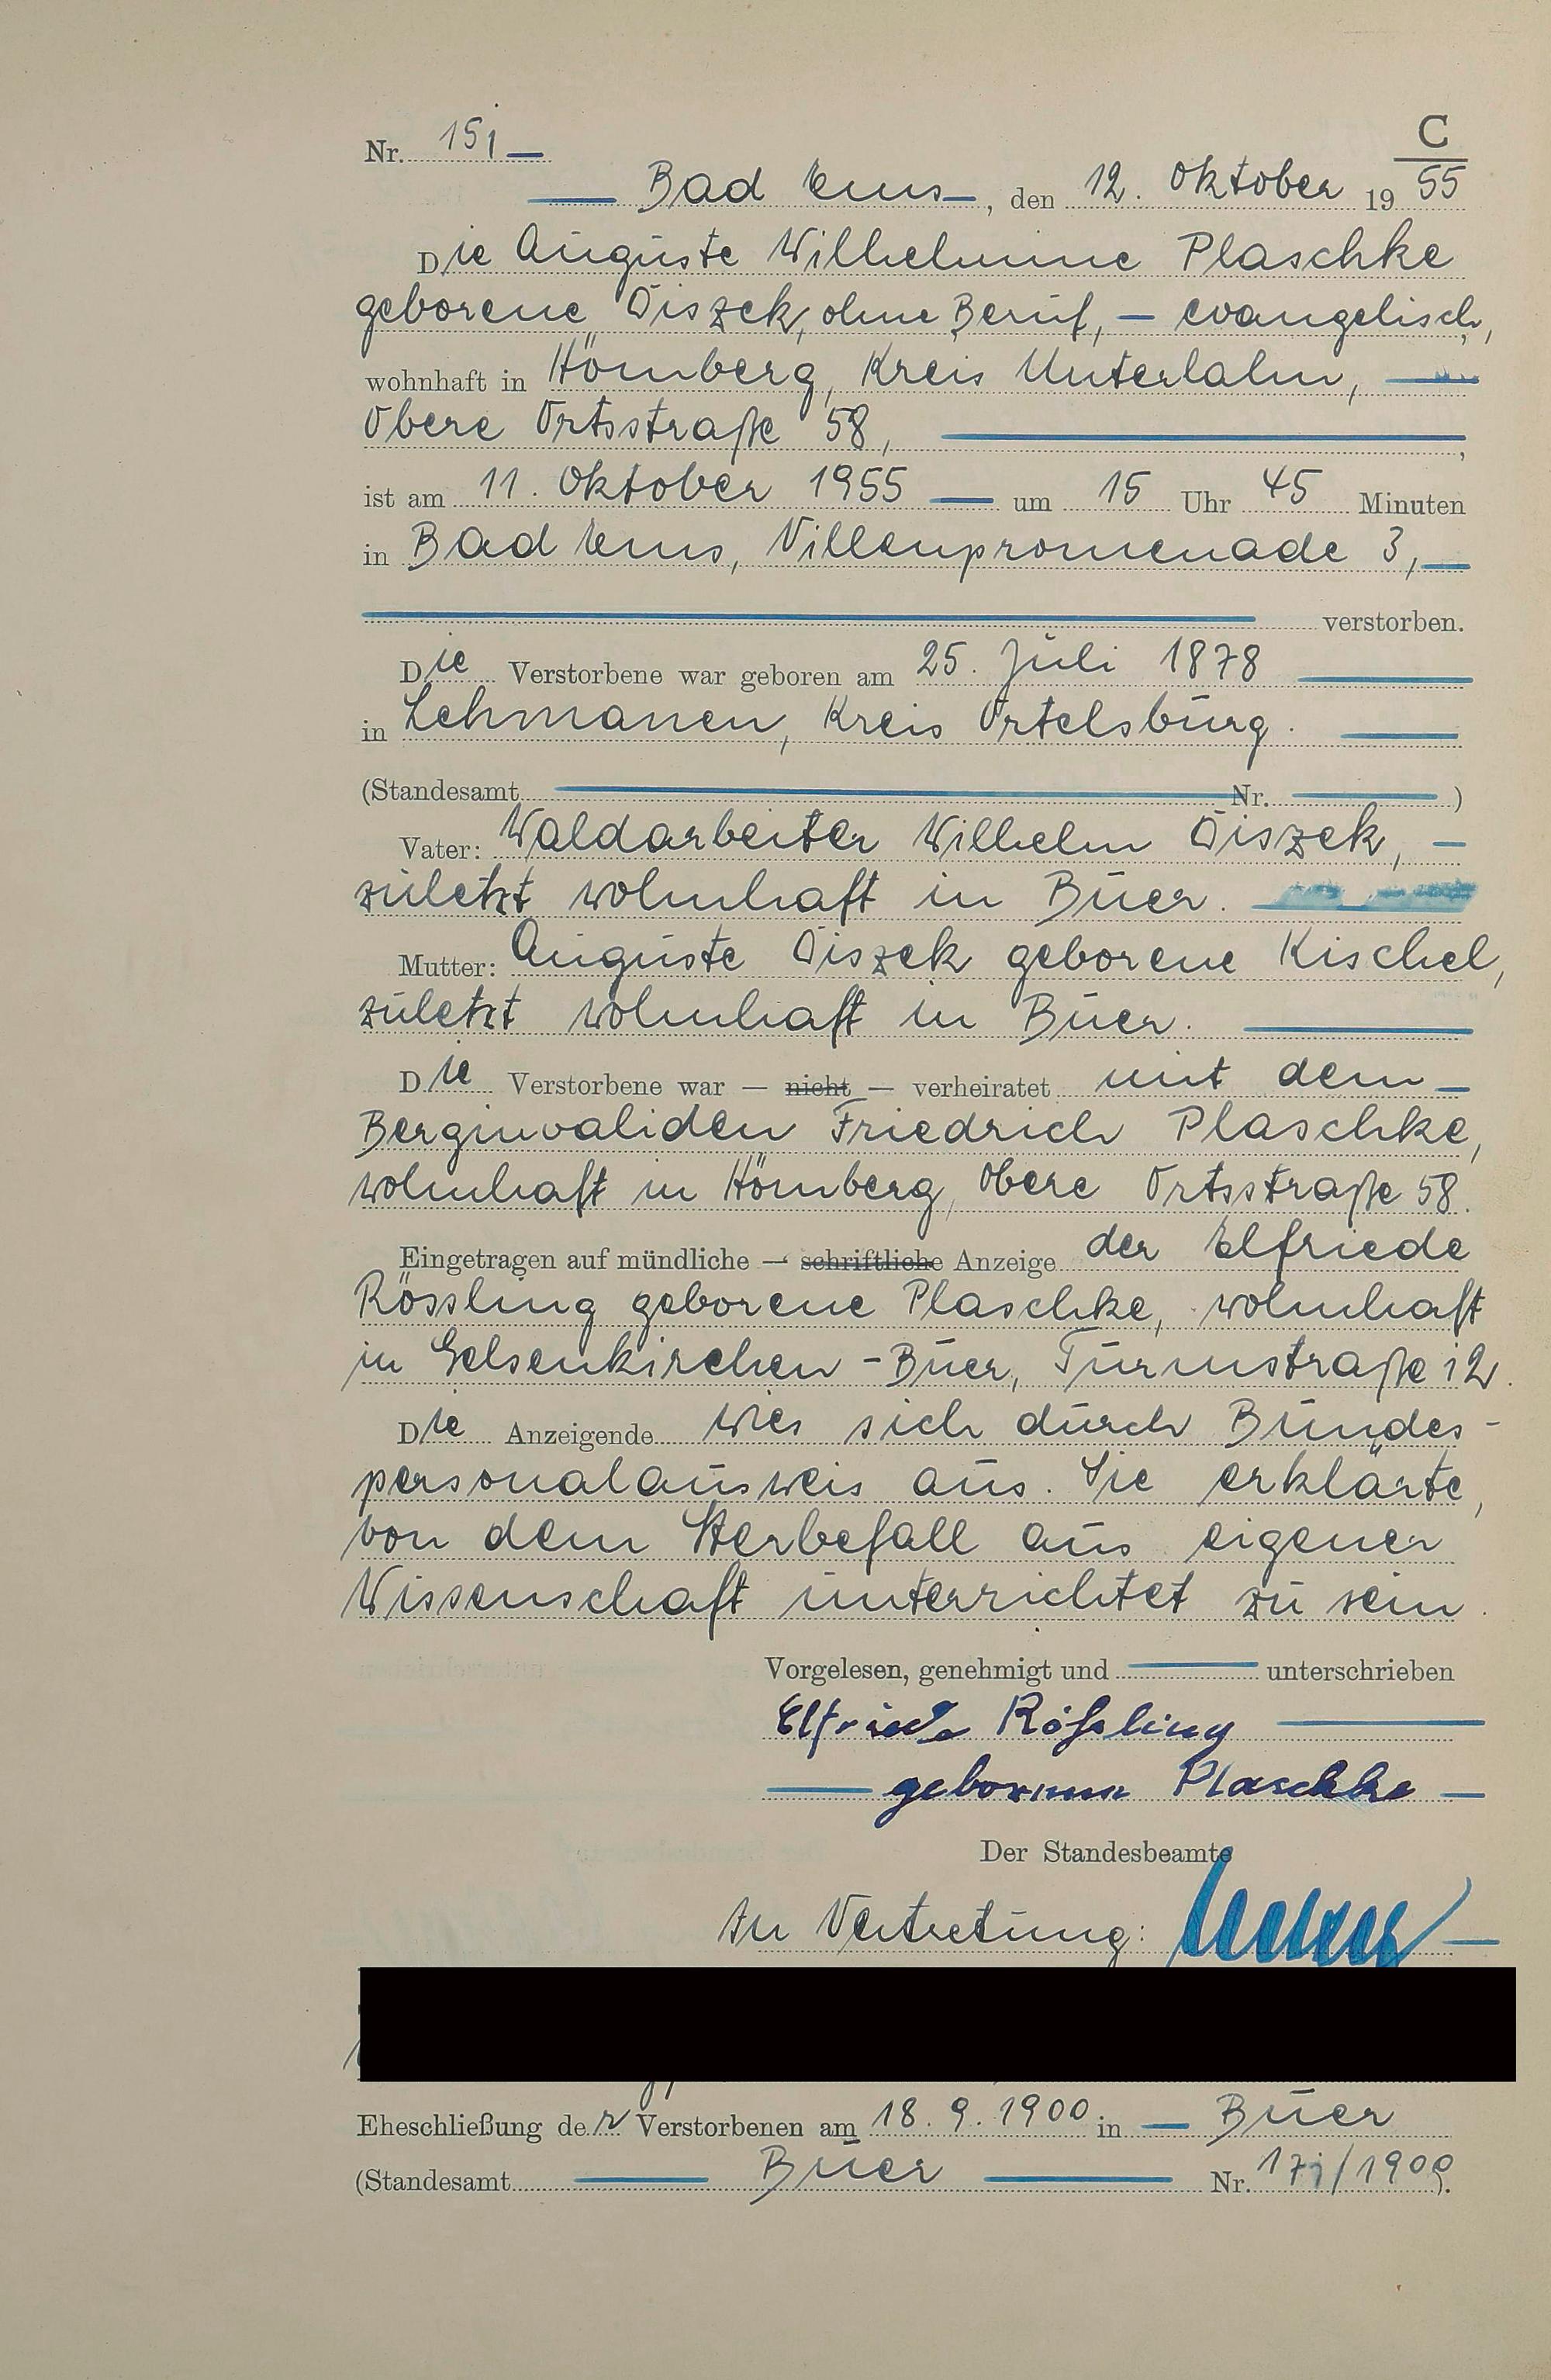 C
Nr. 151
Bad Ems, den 12. Oktober 1955
Die Auguste Wilhelmine Plaschke
geborene Oiszek, ohne Beruf, - evangelisch,
wohnhaft in Hömberg, Kreis Unterlahn,
Obere Ortsstraße 58,
ist am 11. Oktober 1955 um 15 Uhr 45 Minuten
in Bad Ems, Villenpromenade 3,
verstorben.
Die Verstorbene war geboren am 25. Juli 1878
in Lehmanen, Kreis Ortelsburg.
(Standesamt Nr. )
Vater: Waldarbeiter Wilhelm Oiszek,
zuletzt wohnhaft in Buer.
Mutter: Auguste Oiszek geborene Kischel,
zuletzt wohnhaft in Buer.
Die Verstorbene war — nicht — verheiratet mit dem
Berginvaliden Friedrich Plaschke,
wohnhaft in Hömberg, Obere Ortsstraße 58.
Eingetragen auf mündliche — schriftliche Anzeige der Elfriede
Rössling geborene Plaschke, wohnhaft
in Gelsenkirchen-Buer, Turmstraße 12.
Die Anzeigende wies sich durch Bundes-
personalausweis aus. Sie erklärte,
von dem Sterbefall aus eigener
Wissenschaft unterrichtet zu sein.
Vorgelesen, genehmigt und unterschrieben
Elfriede Rößling
geborene Plaschke
Der Standesbeamte
In Vertretung:
Eheschließung der Verstorbenen am 18.9.1900 in Buer
(Standesamt Buer Nr. 171/1900).